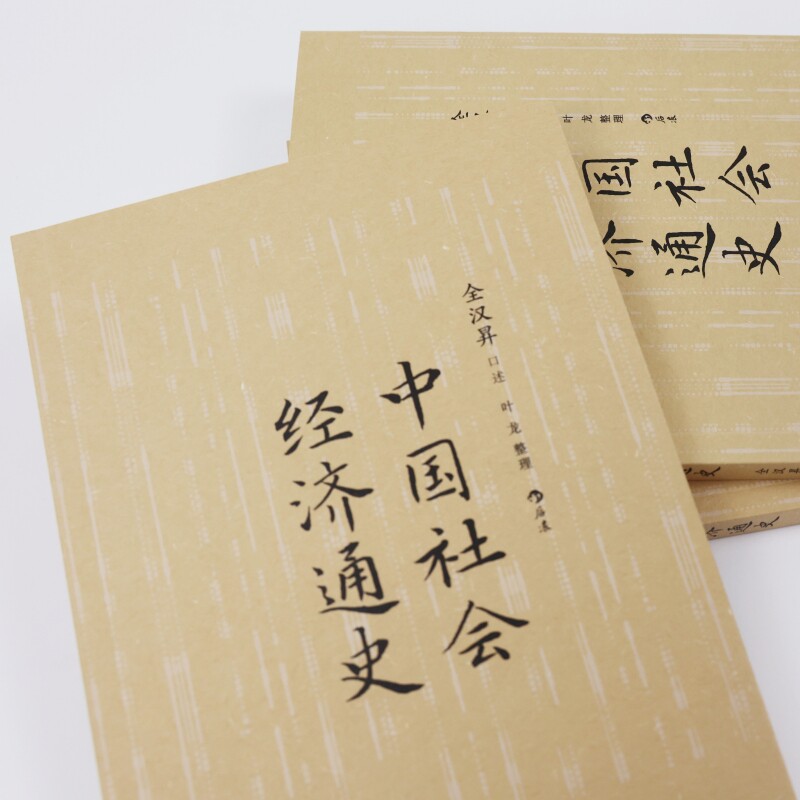 全汉昇 口述 叶龙 整理 后浪
中国社会
经济通史
叶龙整理 后浪
国社会
济通史
史 全汉昇
济通史